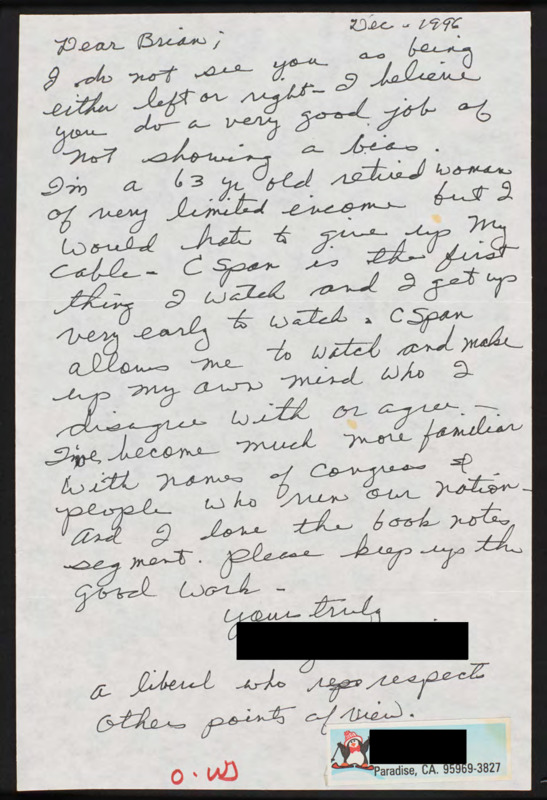 Dec - 1996
Dear Brian;
I do not see you as being
either left or right - I believe
you do a very good job of
not showing a bias.
I'm a 63 yr old retired woman
of very limited encome but I
would hate to give up My
Cable - C Span is the first
thing I watch and I get up
very early to watch. C Span
allows me to watch and make
up my own mind who I
disagree with or agree -
I've become much more familiar
with names of Congress &
people who run our nation -
And I love the book notes
segment. please keep up the
good work -
yours truly
a liberal who respects
others points of view.
Paradise, CA. 95969-3827
O. W